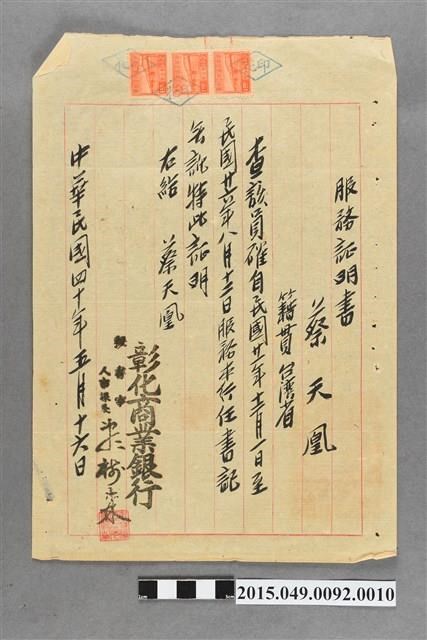 服務証明書
蔡天凰
籍貫 台湾省
查該員確自民國廿一年十二月一日至
民國廿六年八月十三日服務本行任書記
無訛特此証明
右給 蔡天凰
彰化商業銀行
秘書室
中華民國四十年五月十六日
2015.049.0092.0010